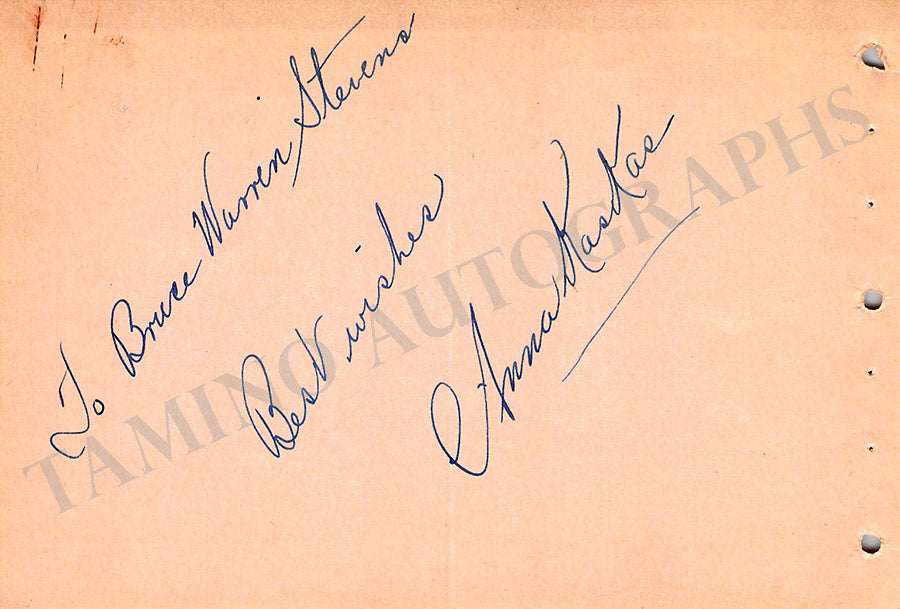 To Bruce Warren Stevens
Best wishes
Anna Kaskas
TAMINO AUTOGRAPHS